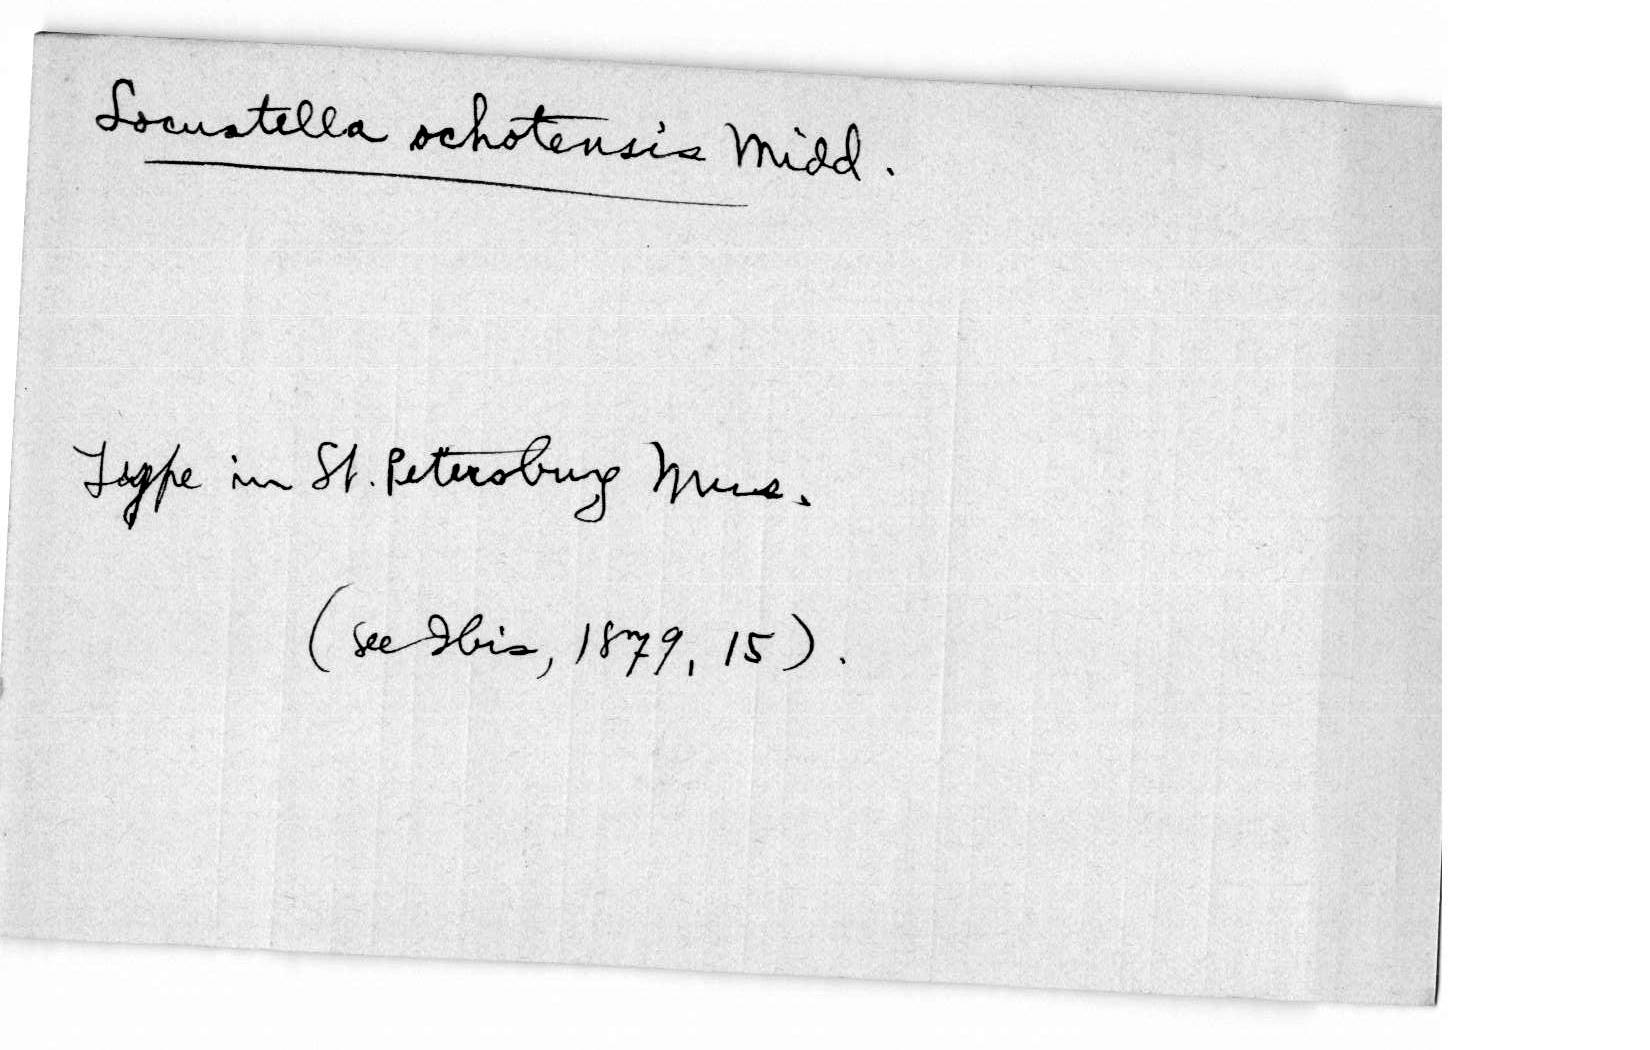 Locustella ochotensis Midd.
Type in St. Petersburg Mus.
(see Ibis, 1879, 15).